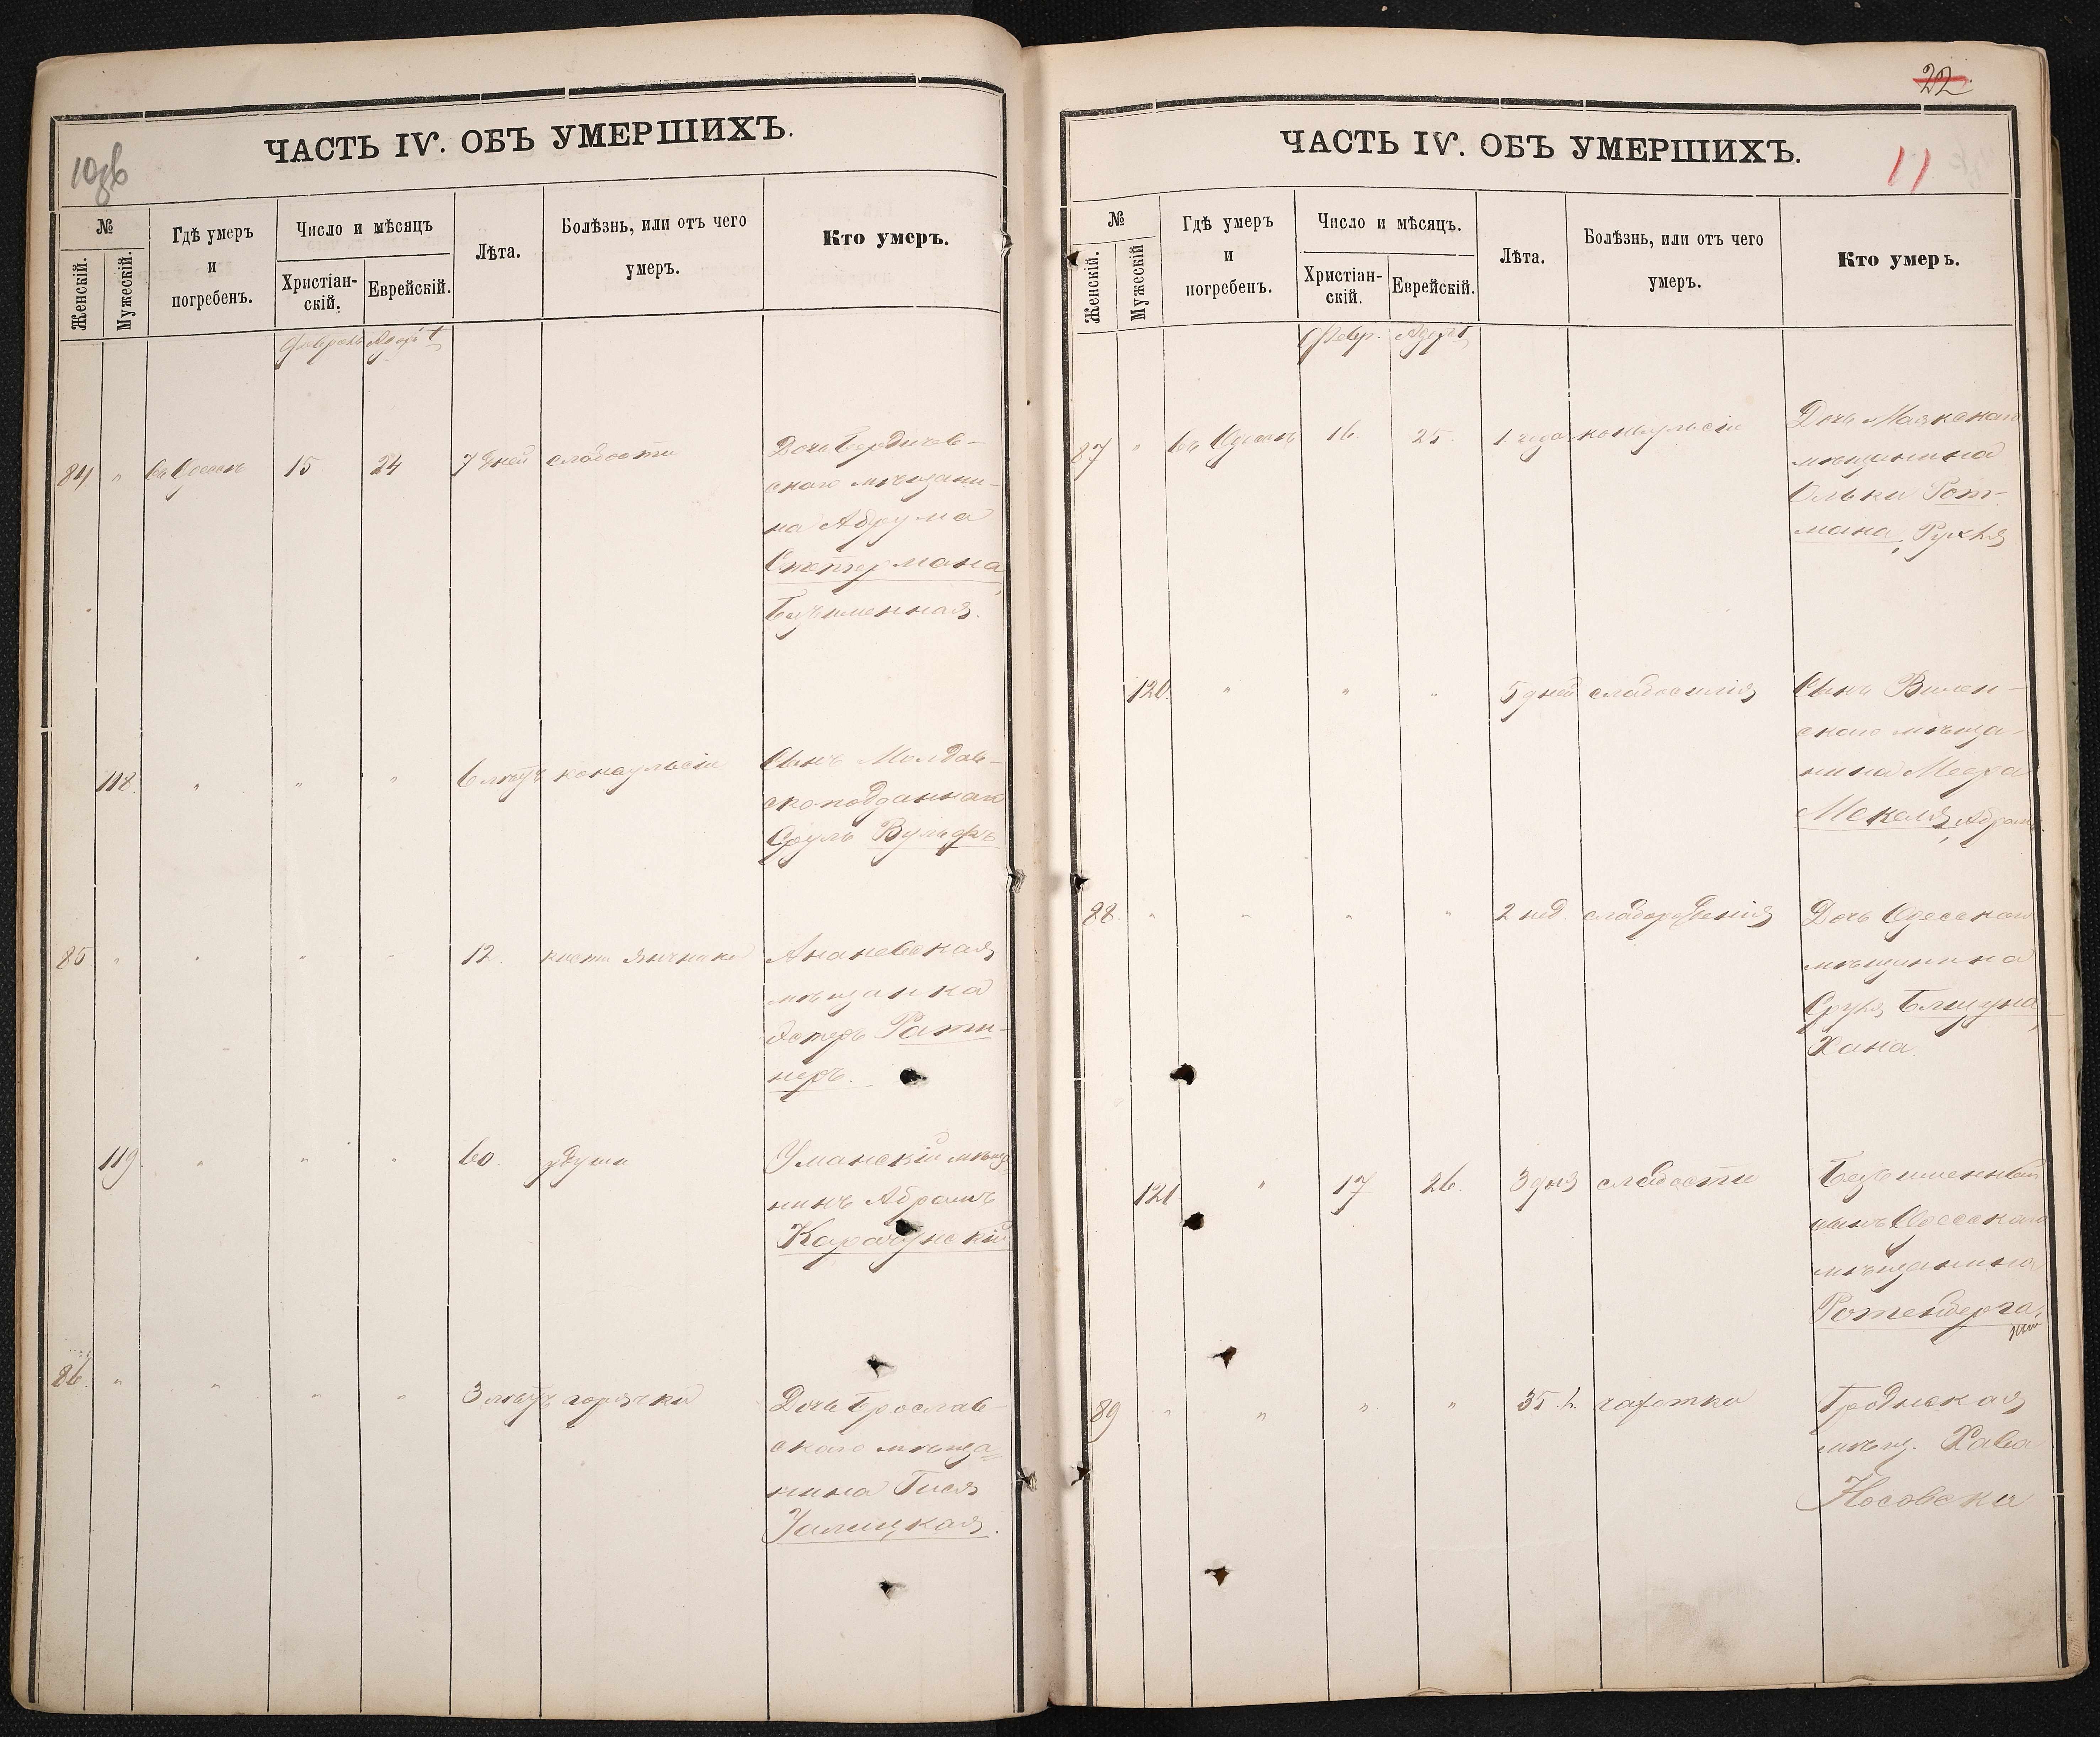 10об
ЧАСТЬ IV. ОБЪ УМЕРШИХЪ.
№
Женскій.
Мужескій.
Гдѣ умеръ
и
погребенъ.
Число и мѣсяцъ
Христіан-
скій.
Еврейскій.
Лѣта.
Болѣзнь, или отъ чего
умеръ.
Кто умеръ.
Февраль Адаръ 1
84 " въ Одессѣ 15 24 7 дней слабости
Дочь Бердичев-
скаго мѣщани-
на Абрума
Спектермана,
Безъименная.
118. " " " 6 лѣтъ конвульсіи
Сынъ Молдав-
скоподданнаго
Сруль Вульфъ
85 " " " " 12. кисты яичника
Ананьевская
мѣщанка
Эстеръ Ратн-
неръ.
119. " " " 60. удуши
Уманскій мѣща-
нинъ Абрамъ
Карачунскій
86. " " " " 3 лѣтъ горячки
Дочь Брослав-
скаго мѣща-
нина Гися
Галицкая.
22
ЧАСТЬ IV. ОБЪ УМЕРШИХЪ.
11
№
Женскій.
Мужескій
Гдѣ умеръ
и
погребенъ.
Число и мѣсяцъ.
Христіан-
скій.
Еврейскій.
Лѣта.
Болѣзнь, или отъ чего
умеръ.
Кто умеръ.
Февр. Адаръ 1
87 " въ Одессѣ 16 25. 1 года конвульсіи
Дочь Маякскаго
мѣщанина
Ольки Рот-
мана, Рухля
120. " " " 5 дней слабосилія
Сынъ Вилен-
скаго мѣща-
нина
Мекеля, Абрамъ.
88. " " " " 2 нед. слаборожденія
Дочь Одесскаго
мѣщанина
Сруля Блицуна,
Хана.
121. " 17 26. 3 дня слабости
Безъименный
сынъ Одесскаго
мѣщанина
Ротенберга,
89 " " " " 35. л. чахотка
Гроднская
мѣщ. Хава
Носовска